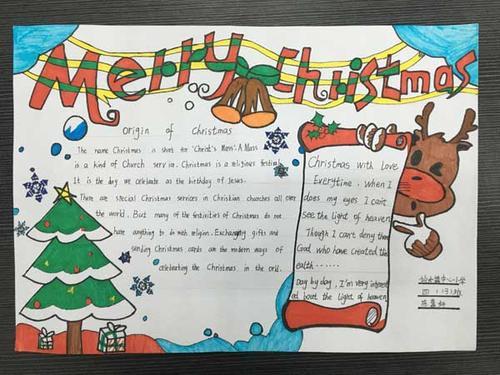 Merry Christmas
Origin of Christmas
The name Christmas is short for "Christ's Mass". A Mass
is a kind of Church servia. Christmas is a religious festival
It is the day we celebrate as the birthday of Jesus.
There are special Christmas services in Christian churches all over
the world. But many of the festivities of Christmas do not
have anything to do with religion. Exchanging gifts and
sending Christmas cards are the modern ways of
celebrating the Christmas in the world.
Christmas with Love
Everytime, when I
does my eyes I can't
see the light of heaven
Though I can't deny them
God, who have created the
ealth······
Day by day, I'm very interest
ed bout the light of heaven
中心小学
四